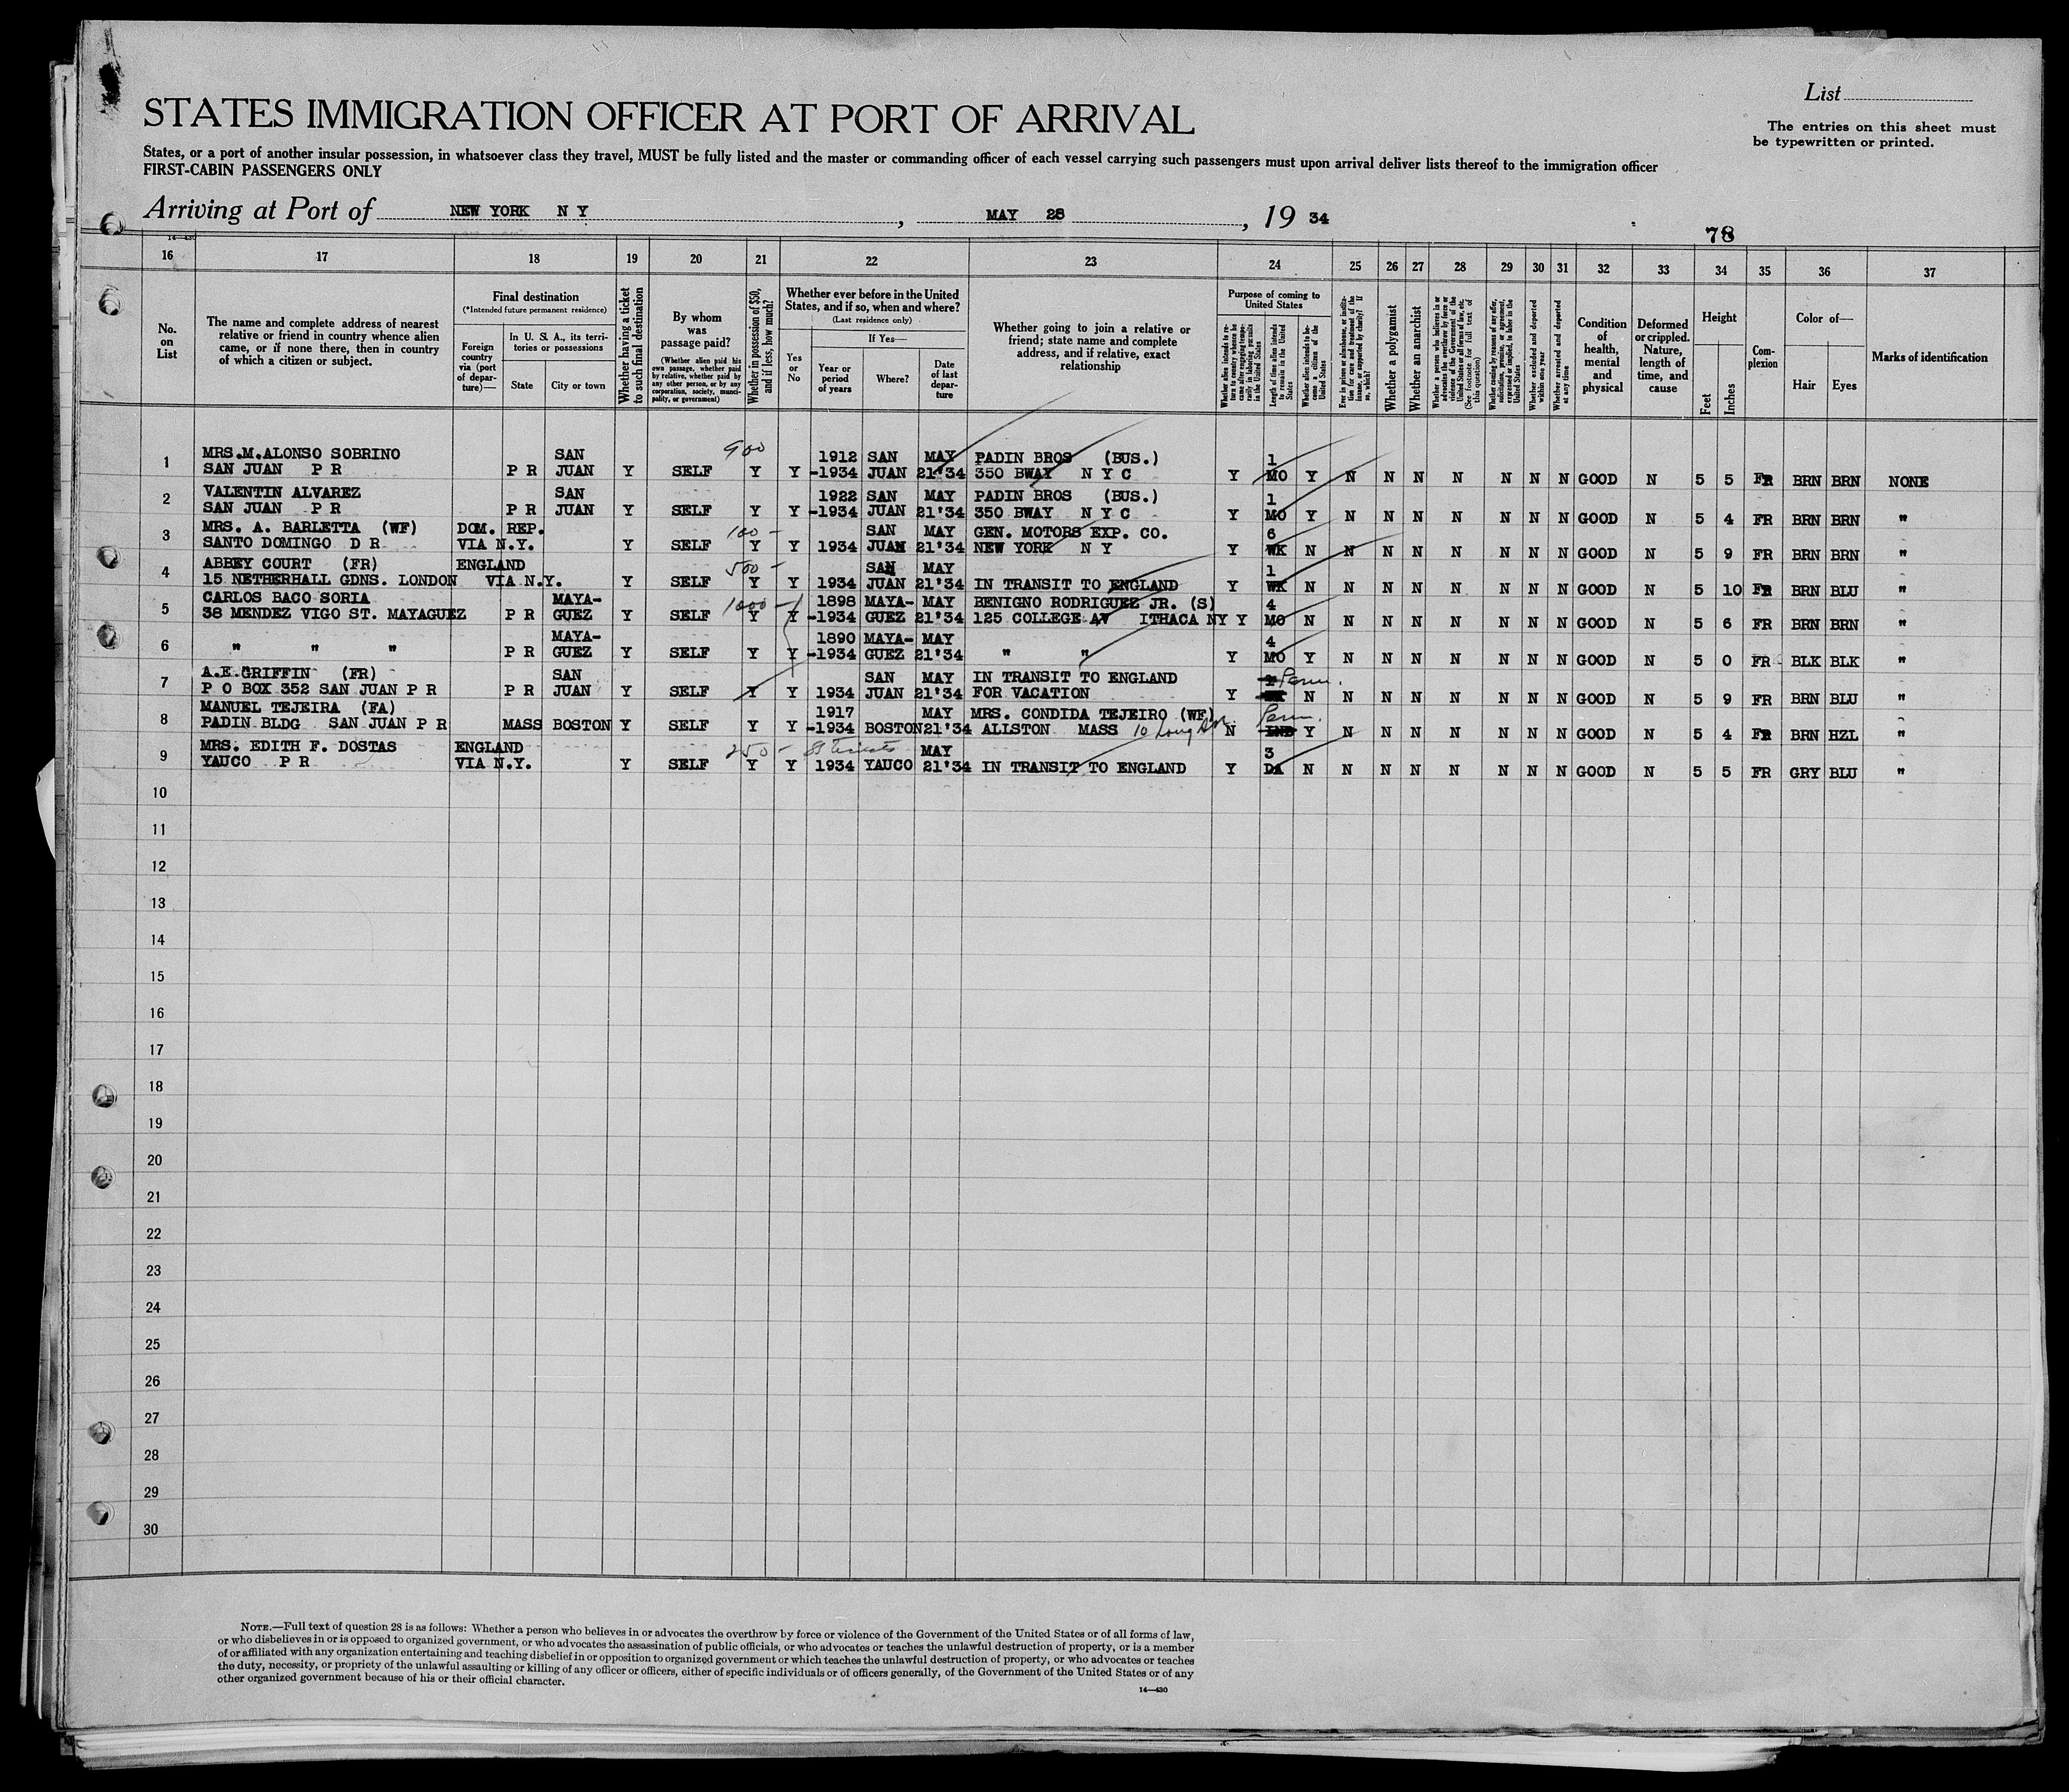 List
The entries on this sheet must
be typewritten or printed.
STATES IMMIGRATION OFFICER AT PORT OF ARRIVAL
States, or a port of another insular possession, in whatsoever class they travel, MUST be fully listed and the master or commanding officer of each vessel carrying such passengers must upon arrival deliver lists thereof to the immigration officer
FIRST-CABIN PASSENGERS ONLY
Arriving at Port of NEW YORK N Y , MAY 28 , 19 34
78
14—430
16 17 18 19 20 21 22 23 24 25 26 27 28 29 30 31 32 33 34 35 36 37
No. on List
The name and complete address of nearest relative or friend in country whence alien came, or if none there, then in country of which a citizen or subject.
Final destination
(*Intended future permanent residence)
Foreign country via (port of departure)—
In U. S. A., its territories or possessions
State
City or town
Whether having a ticket to such final destination
By whom was passage paid?
(Whether alien paid his own passage, whether paid by relative, whether paid by any other person, or by any corporation, society, municipality, or government)
Whether in possession of $50, and if less, how much?
Whether ever before in the United States, and if so, when and where?
(Last residence only)
Yes or No
If Yes—
Year or period of years
Where?
Date of last departure
Whether going to join a relative or friend; state name and complete address, and if relative, exact relationship
Purpose of coming to United States
Whether alien intends to return to country whence he came after engaging temporarily in laboring pursuits in the United States
Length of time alien intends to remain in the United States
Whether alien intends to become a citizen of the United States
Ever in prison or almshouse, or institution for care and treatment of the insane, or supported by charity? If so, which?
Whether a polygamist
Whether an anarchist
Whether a person who believes in or advocates the overthrow by force or violence of the Government of the United States or all forms of law, etc. (See footnote for full text of this question)
Whether coming by reasons of any offer, solicitation, promise, or agreement, expressed or implied, to labor in the United States
Whether excluded and deported within one year
Whether arrested and deported at any time
Condition of health, mental and physical
Deformed or crippled. Nature, length of time, and cause
Height
Feet
Inches
Complexion
Color of—
Hair
Eyes
Marks of identification
900
MRS.M.ALONSO SOBRINO SAN 1912 SAN MAY PADIN BROS (BUS.) 1
1 SAN JUAN P R P R JUAN Y SELF Y Y -1934 JUAN 21'34 350 BWAY N Y C Y MO Y N N N N N N N GOOD N 5 5 FR BRN BRN NONE
VALENTIN ALVAREZ SAN 1922 SAN MAY PADIN BROS (BUS.) 1
2 SAN JUAN P R P R JUAN Y SELF Y Y -1934 JUAN 21'34 350 BWAY N Y C Y MO Y N N N N N N N GOOD N 5 4 FR BRN BRN "
MRS. A. BARLETTA (WF) DOM. REP. 100 - SAN MAY GEN. MOTORS EXP. CO. 6
3 SANTO DOMINGO D R VIA N.Y. Y SELF Y Y 1934 JUAN 21'34 NEW YORK N Y Y WK N N N N N N N N GOOD N 5 9 FR BRN BRN "
ABBEY COURT (FR) ENGLAND 500 - SAN MAY 1
4 15 NETHERHALL GDNS. LONDON VIA N.Y. Y SELF Y Y 1934 JUAN 21'34 IN TRANSIT TO ENGLAND Y WK N N N N N N N N GOOD N 5 10 FR BRN BLU "
CARLOS BACO SORIA MAYA- 1000 - 1898 MAYA- MAY BENIGNO RODRIGUEZ JR. (S) 4
5 38 MENDEZ VIGO ST. MAYAGUEZ P R GUEZ Y SELF Y Y -1934 GUEZ 21'34 125 COLLEGE AV ITHACA NY Y MO N N N N N N N N GOOD N 5 6 FR BRN BRN "
MAYA- 1890 MAYA- MAY 4
6 " " " P R GUEZ Y SELF Y Y -1934 GUEZ 21'34 " " Y MO Y N N N N N N N GOOD N 5 0 FR BLK BLK "
A.E.GRIFFIN (FR) SAN SAN MAY IN TRANSIT TO ENGLAND Perm.
7 P O BOX 352 SAN JUAN P R P R JUAN Y SELF Y Y 1934 JUAN 21'34 FOR VACATION Y N N N N N N N N GOOD N 5 9 FR BRN BLU "
MANUEL TEJEIRA (FA) 1917 MAY MRS. CONDIDA TEJEIRO (WF) Perm.
8 PADIN BLDG SAN JUAN P R MASS BOSTON Y SELF Y Y -1934 BOSTON 21'34 ALISTON MASS 10 Long N IND Y N N N N N N N GOOD N 5 4 FR BRN HZL "
MRS. EDITH F. DOSTAS ENGLAND 250 - MAY 3
9 YAUCO P R VIA N.Y. Y SELF Y Y 1934 YAUCO 21'34 IN TRANSIT TO ENGLAND Y DA N N N N N N N N GOOD N 5 5 FR GRY BLU "
10
11
12
13
14
15
16
17
18
19
20
21
22
23
24
25
26
27
28
29
30
NOTE.—Full text of question 28 is as follows: Whether a person who believes in or advocates the overthrow by force or violence of the Government of the United States or of all forms of law,
or who disbelieves in or is opposed to organized government, or who advocates the assassination of public officials, or who advocates or teaches the unlawful destruction of property, or is a member
of or affiliated with any organization entertaining and teaching disbelief in or opposition to organized government or which teaches the unlawful destruction of property, or who advocates or teaches
the duty, necessity, or propriety of the unlawful assaulting or killing of any officer or officers, either of specific individuals or of officers generally, of the Government of the United States or of any
other organized government because of his or their official character.
14—430